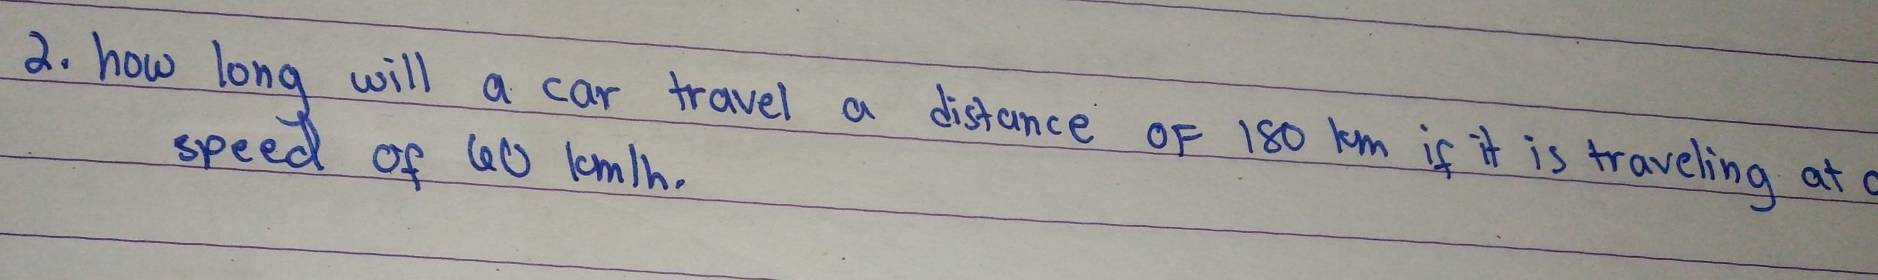 2. how long will a car travel a distance OF 180 km if it is traveling at a
speed of 60 km/h.